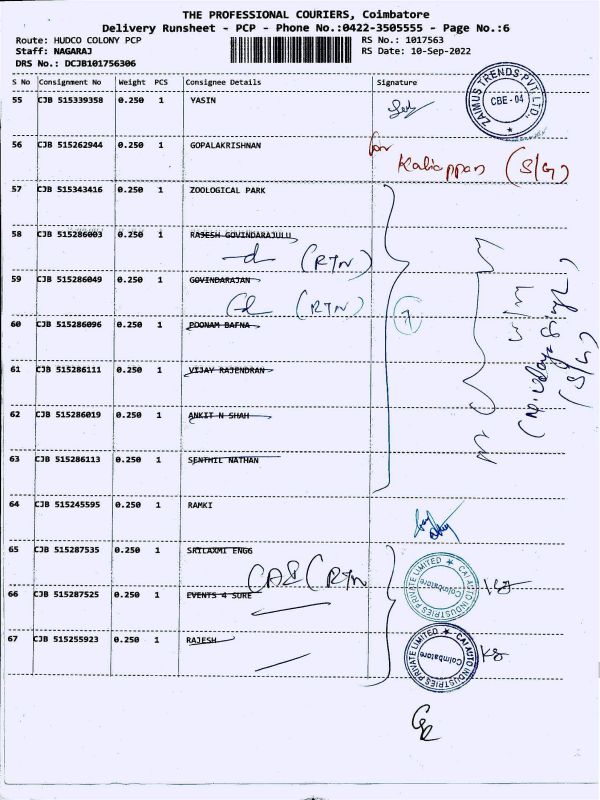 THE PROFESSIONAL COURIERS, Coimbatore
Delivery Runsheet - PCP - Phone No.:0422-3505555 - Page No.:6
Route: HUDCO COLONY PCP RS No.: 1017563
Staff: NAGARAJ RS Date: 10-Sep-2022
DRS No.: DCJB101756306
S No Consignment No Weight PCS Consignee Details Signature
55 CJB 515339358 0.250 1 YASIN
ZAIMUS TRENDS PVT. LTD.,
CBE - 04
56 CJB 515262944 0.250 1 GOPALAKRISHNAN
for Kaliappan (S/G)
57 CJB 515343416 0.250 1 ZOOLOGICAL PARK
58 CJB 515286003 0.250 1 RAJESH GOVINDARAJULU
(RTN)
59 CJB 515286049 0.250 1 GOVINDARAJAN
(RTN)
60 CJB 515286096 0.250 1 POONAM BAFNA
7
61 CJB 515286111 0.250 1 VIJAY RAJENDRAN
62 CJB 515286019 0.250 1 ANKIT N SHAH
63 CJB 515286113 0.250 1 SENTHIL NATHAN
(S/G)
64 CJB 515245595 0.250 1 RAMKI
65 CJB 515287535 0.250 1 SRILAXMI ENGG
(RTN
CAI AUTO INDUSTRIES PRIVATE LIMITED
Coimbatore
66 CJB 515287525 0.250 1 EVENTS 4 SURE
67 CJB 515255923 0.250 1 RAJESH
CAI AUTO INDUSTRIES PRIVATE LIMITED
Coimbatore